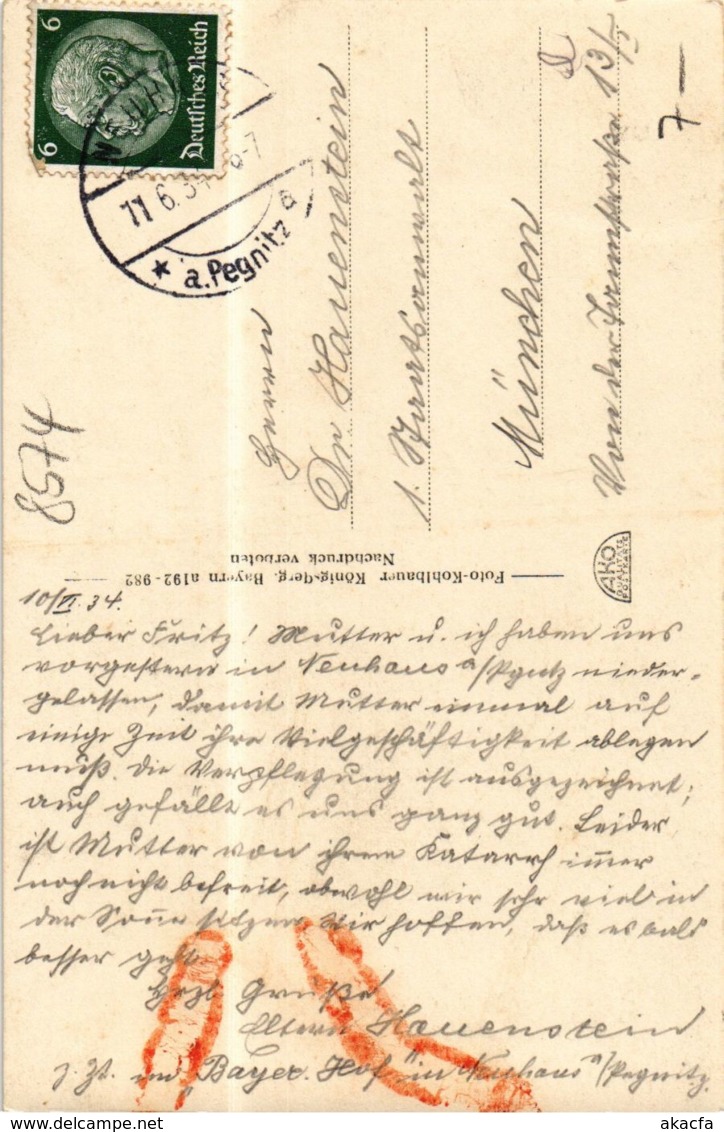 6 Deutsches Reich 6
11.6.34 6-7
* a. Pegnitz a
Herrn
Dr. Hauenstein
1. Staatsanwalt
München
Von der Tannstraße 13/I
7 —
8574
AKO
QUALITÄTS
POSTKARTE
Foto-Kohlbauer Königsberg, Bayern a192-982
Nachdruck verboten
10/VI.34.
Lieber Fritz! Mutter u. ich haben uns
vorgestern in Neuhaus a/Pgnitz nieder-
gelassen, damit Mutter einmal auf
einige Zeit ihre Vielgeschäftigkeit ablegen
muß. Die Verpflegung ist ausgezeichnet;
auch gefällt es uns ganz gut. Leider
ist Mutter von ihrem Katarrh immer
noch nicht befreit, obwohl wir sehr viel in
der Sonne sitzen. Wir hoffen, daß es bald
besser geht.
Hrzl. Grüße!
Eltern Hauenstein
z. Zt. im "Bayer. Hof" in Neuhaus a/Pegnitz.
akacfa